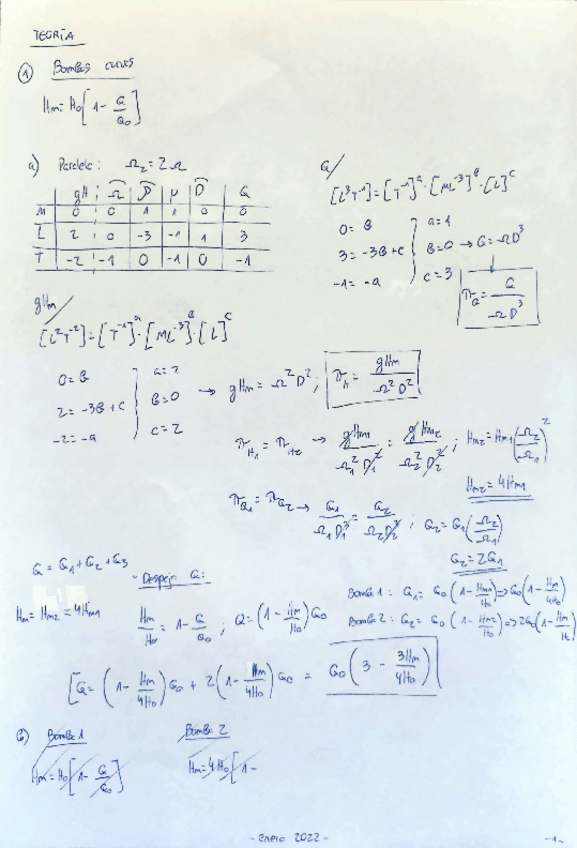 TEORÍA
1 Bombas curvas
Hm = H0 [1 - Q/Q0]
a) Paralelo: Ω2 = 2Ω
gH Ω ρ μ D Q
M 0 0 1 1 0 0
L 2 0 -3 -1 1 3
T -2 -1 0 -1 0 -1
Q/
[L³T⁻¹] = [T⁻¹]^a · [ML⁻³]^B · [L]^C
0 = B a = 1
3 = -3B + c B = 0 → Q = ΩD³
-1 = -a c = 3
πQ = Q/ΩD³
gHm/
[L²T⁻²] = [T⁻¹]^a · [ML⁻³]^B · [L]^C
0 = B a = 2
2 = -3B + c B = 0 → gHm = Ω²D² ; πh = gHm/Ω²D²
-2 = -a c = 2
πH1 = πH2 → gHm1/Ω1²D1² = gHm2/Ω2²D2² ; Hm2 = Hm1 (Ω2/Ω1)²
Hm2 = 4Hm1
πQ1 = πQ2 → Q1/Ω1D1³ = Q2/Ω2D2³ ; Q2 = Q1 (Ω2/Ω1)
Q2 = 2Q1
Q = Q1 + Q2 + Q3
- Despejo Q:
Hm = Hm2 = 4Hm1
Hm/H0 = 1 - Q/Q0 ; Q = (1 - Hm/H0) Q0
Bomba 1: Q1 = Q0 (1 - Hm1/H0) => Q0 (1 - Hm/4H0)
Bomba 2: Q2 = Q0 (1 - Hm2/H0) => 2Q0 (1 - Hm/
[Q = (1 - Hm/4H0) Q0 + 2 (1 - Hm/4H0) Q0 = Q0 (3 - 3Hm/4H0)
b) Bomba 1 Bomba 2
Hm = H0 [1 - Q/Q0] Hm = 4H0 [1 -
- enero 2022 -
- 1 -